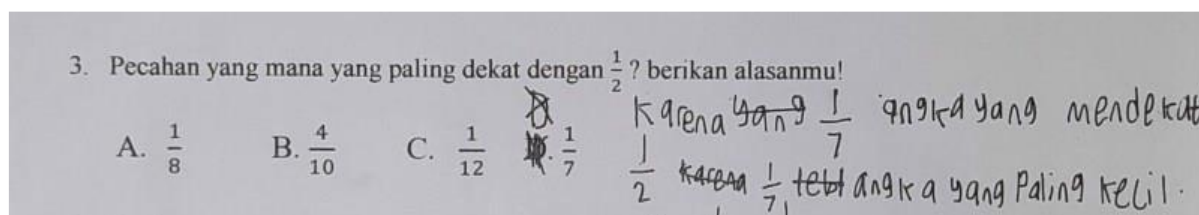 3. Pecahan yang mana yang paling dekat dengan 1/2 ? berikan alasanmu!
A. 1/8 B. 4/10 C. 1/12 D. 1/7
Karena yang 1/7 angka yang mendekat
1/2 karena 1/7 angka yang Paling kecil.